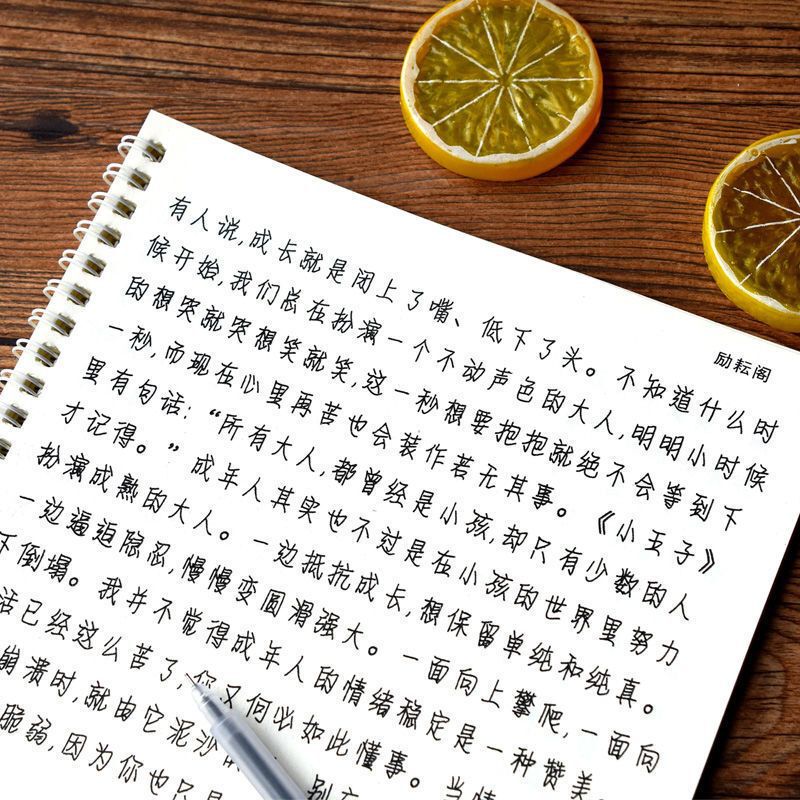 励耘阁
有人说,成长就是闭上了嘴、低下了头。不知道什么时
候开始,我们总在扮演一个不动声色的大人,明明小时候
的想突就突想笑就笑,这一秒想要抱抱就绝不会等到下
一秒,而现在心里再苦也会装作若无其事。《小王子》
里有句话:“所有大人,都曾经是小孩,却只有少数的人
才记得。”成年人其实也不过是在小孩的世界里努力
扮演成熟的大人。一边抵抗成长,想保留单纯和纯真。
一边逼迫隐忍,慢慢变圆滑强大。一面向上攀爬,一面向
下倒塌。我并不觉得成年人的情绪稳定是一种赞美
活已经这么苦了,你又何必如此懂事。当情
崩溃时,就由它泥沙 别
脆弱,因为你也只